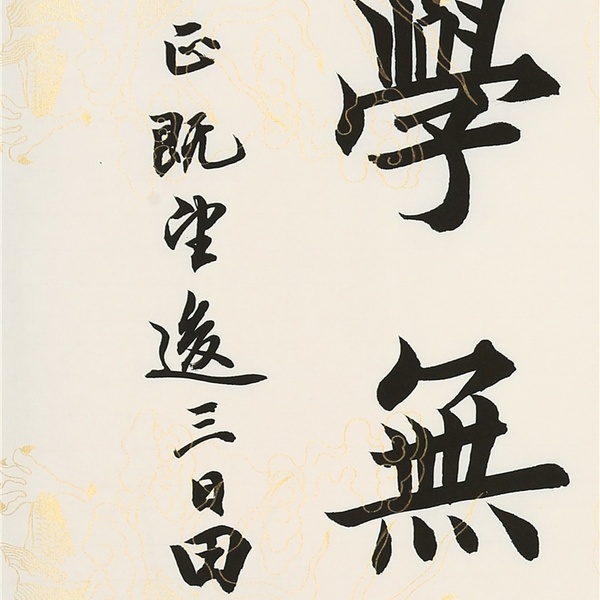 學無
正既望後三日田